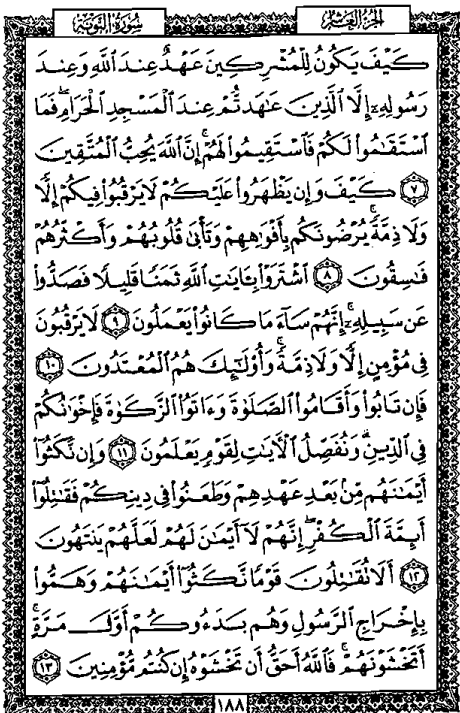 الجزء العاشر
سورة التوبة
كَيْفَ يَكُونُ لِلْمُشْرِكِينَ عَهْدٌ عِندَ اللَّهِ وَعِندَ
رَسُولِهِ إِلَّا الَّذِينَ عَاهَدتُّمْ عِندَ الْمَسْجِدِ الْحَرَامِ ۖ فَمَا
اسْتَقَامُوا لَكُمْ فَاسْتَقِيمُوا لَهُمْ ۚ إِنَّ اللَّهَ يُحِبُّ الْمُتَّقِينَ
٧ كَيْفَ وَإِن يَظْهَرُوا عَلَيْكُمْ لَا يَرْقُبُوا فِيكُمْ إِلًّا
وَلَا ذِمَّةً ۚ يُرْضُونَكُم بِأَفْوَاهِهِمْ وَتَأْبَىٰ قُلُوبُهُمْ وَأَكْثَرُهُمْ
فَاسِقُونَ ٨ اشْتَرَوْا بِآيَاتِ اللَّهِ ثَمَنًا قَلِيلًا فَصَدُّوا
عَن سَبِيلِهِ ۚ إِنَّهُمْ سَاءَ مَا كَانُوا يَعْمَلُونَ ٩ لَا يَرْقُبُونَ
فِي مُؤْمِنٍ إِلًّا وَلَا ذِمَّةً ۚ وَأُولَٰئِكَ هُمُ الْمُعْتَدُونَ ١٠
فَإِن تَابُوا وَأَقَامُوا الصَّلَاةَ وَآتَوُا الزَّكَاةَ فَإِخْوَانُكُمْ
فِي الدِّينِ ۗ وَنُفَصِّلُ الْآيَاتِ لِقَوْمٍ يَعْلَمُونَ ١١ وَإِن نَّكَثُوا
أَيْمَانَهُم مِّن بَعْدِ عَهْدِهِمْ وَطَعَنُوا فِي دِينِكُمْ فَقَاتِلُوا
أَئِمَّةَ الْكُفْرِ ۙ إِنَّهُمْ لَا أَيْمَانَ لَهُمْ لَعَلَّهُمْ يَنتَهُونَ
١٢ أَلَا تُقَاتِلُونَ قَوْمًا نَّكَثُوا أَيْمَانَهُمْ وَهَمُّوا
بِإِخْرَاجِ الرَّسُولِ وَهُم بَدَءُوكُمْ أَوَّلَ مَرَّةٍ ۚ
أَتَخْشَوْنَهُمْ ۚ فَاللَّهُ أَحَقُّ أَن تَخْشَوْهُ إِن كُنتُم مُّؤْمِنِينَ ١٣
١٨٨